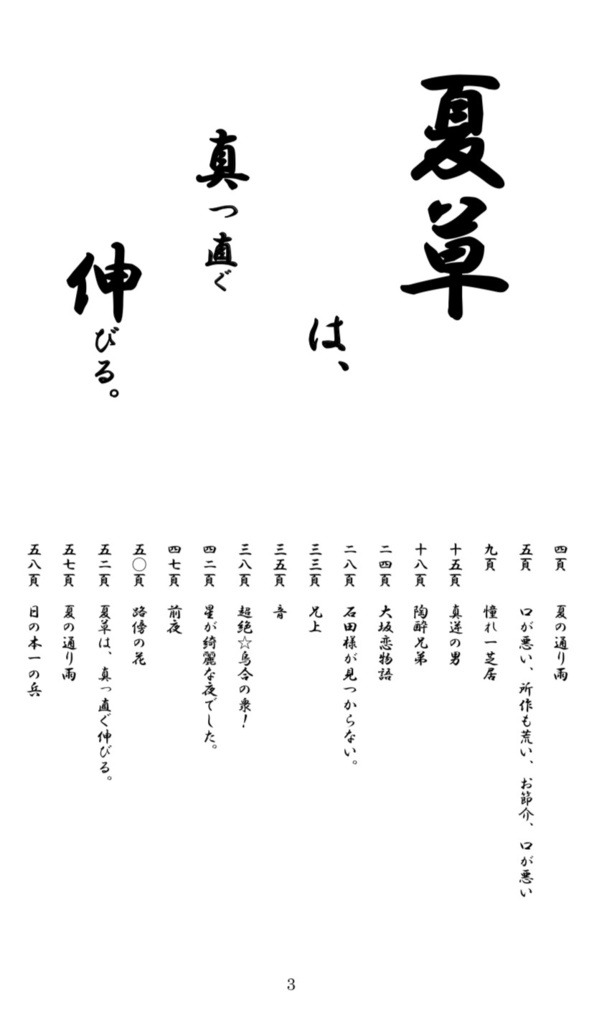 夏草
は、
真っ直ぐ
伸びる。
四頁 夏の通り雨
五頁 口が悪い、所作も荒い、お節介、口が悪い
九頁 憧れ一芝居
十五頁 真逆の男
十八頁 陶酔兄弟
二四頁 大坂恋物語
二八頁 石田様が見つからない。
三三頁 兄上
三五頁 音
三八頁 超絶☆烏合の衆！
四二頁 星が綺麗な夜でした。
四七頁 前夜
五〇頁 路傍の花
五二頁 夏草は、真っ直ぐ伸びる。
五七頁 夏の通り雨
五八頁 日の本一の兵
3